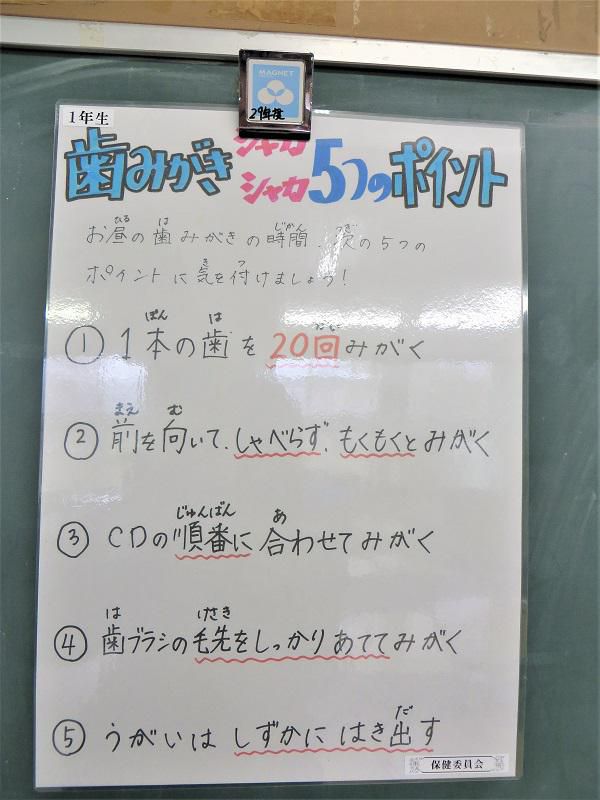 MAGNET
29年度
1年生
歯みがき シャカシャカ 5つのポイント
お昼の歯みがきの時間、次の5つの
ポイントに気を付けましょう！
① 1本の歯を20回みがく
② 前を向いて、しゃべらず、もくもくとみがく
③ CDの順番に合わせてみがく
④ 歯ブラシの毛先をしっかりあててみがく
⑤ うがいはしずかにはき出す
保健委員会